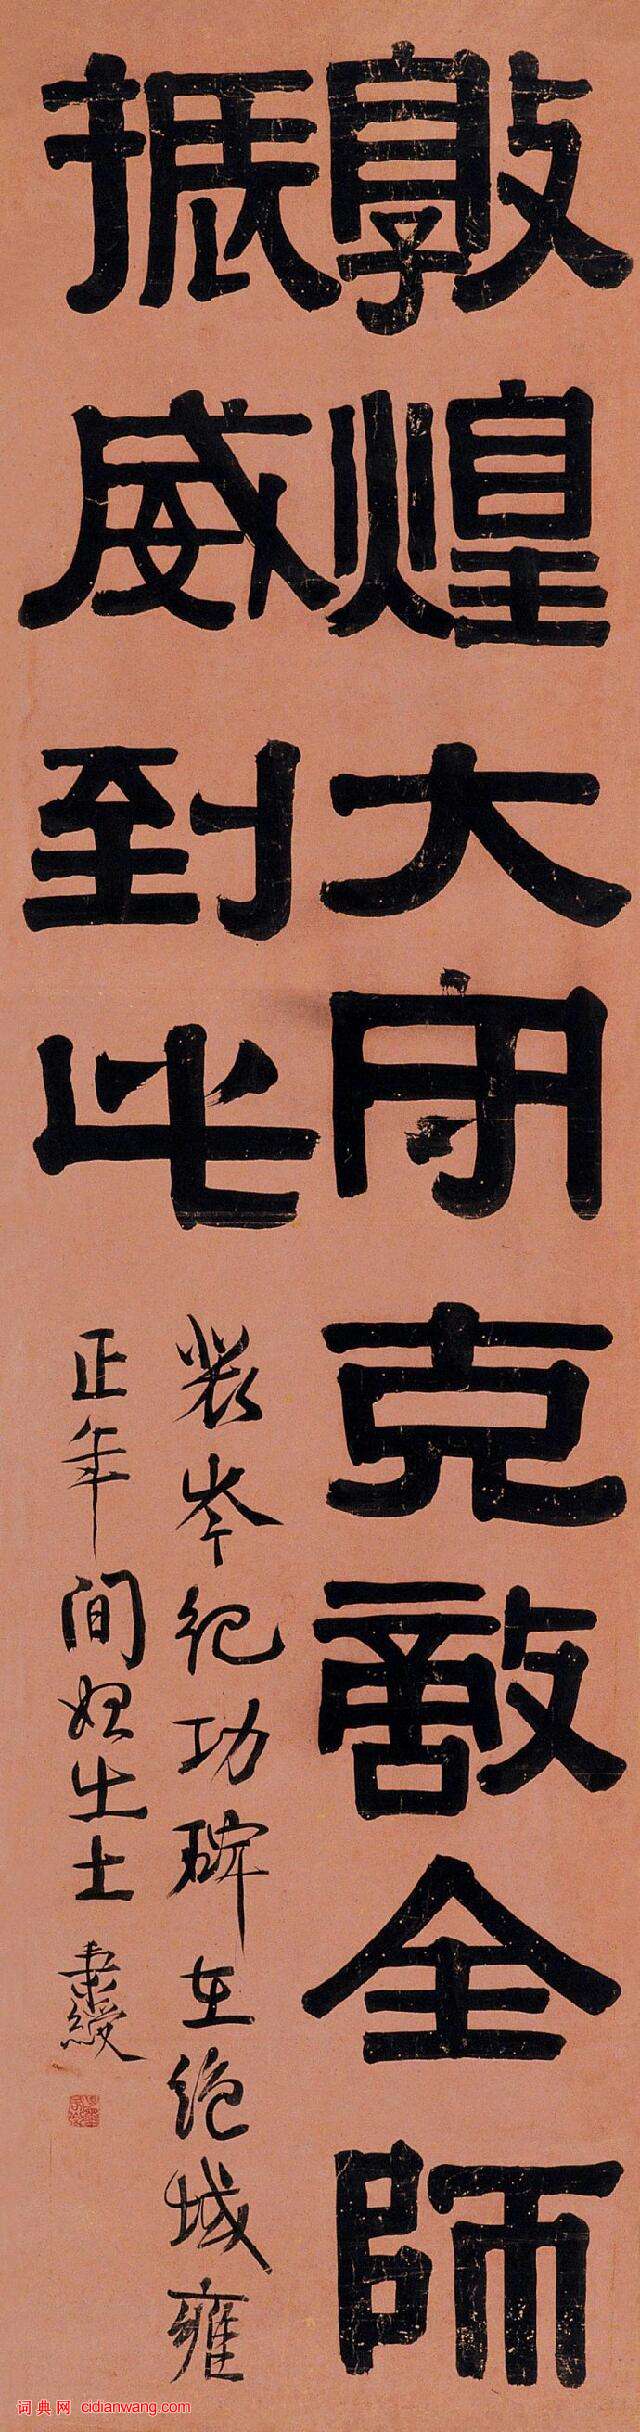 敦煌大守克敵全師
振威到此
裴岑紀功碑在絶域雍
正年間始出土 秉綬
词典网 cidianwang.com